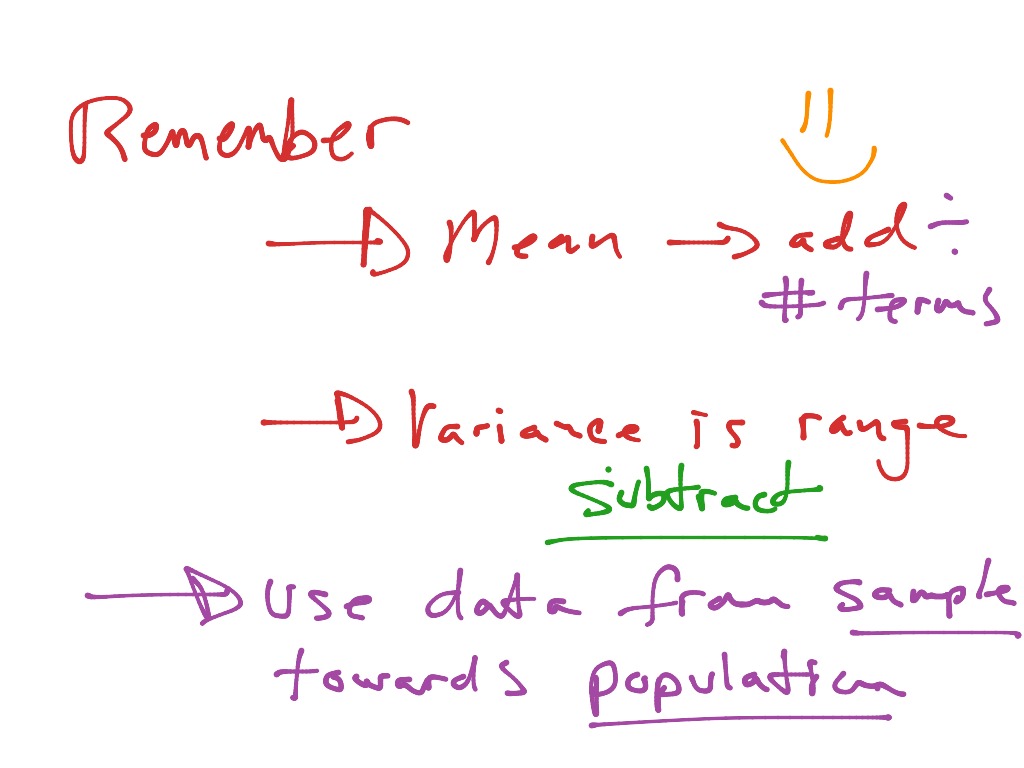 Remember
→ Mean → add ÷
# terms
→ Variance is range
subtract
→ use data from sample
towards population